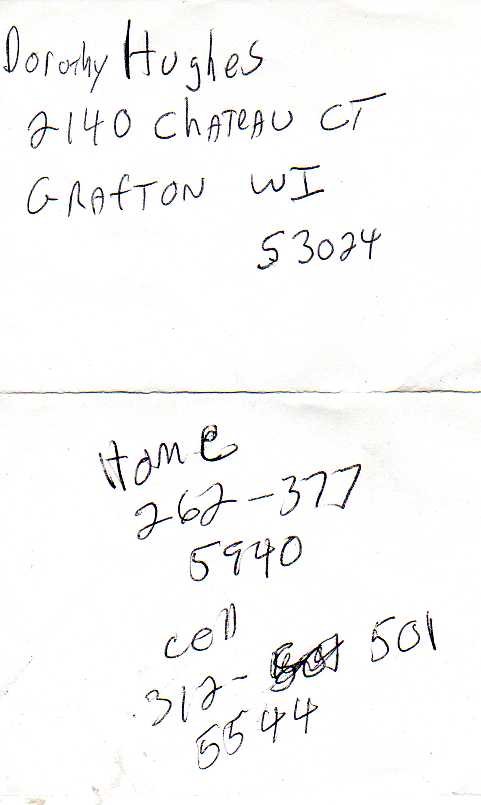 Dorothy Hughes
2140 CHATEAU CT
GRAFTON WI
53024
Home
262-377
5940
cell
312- 501
5544